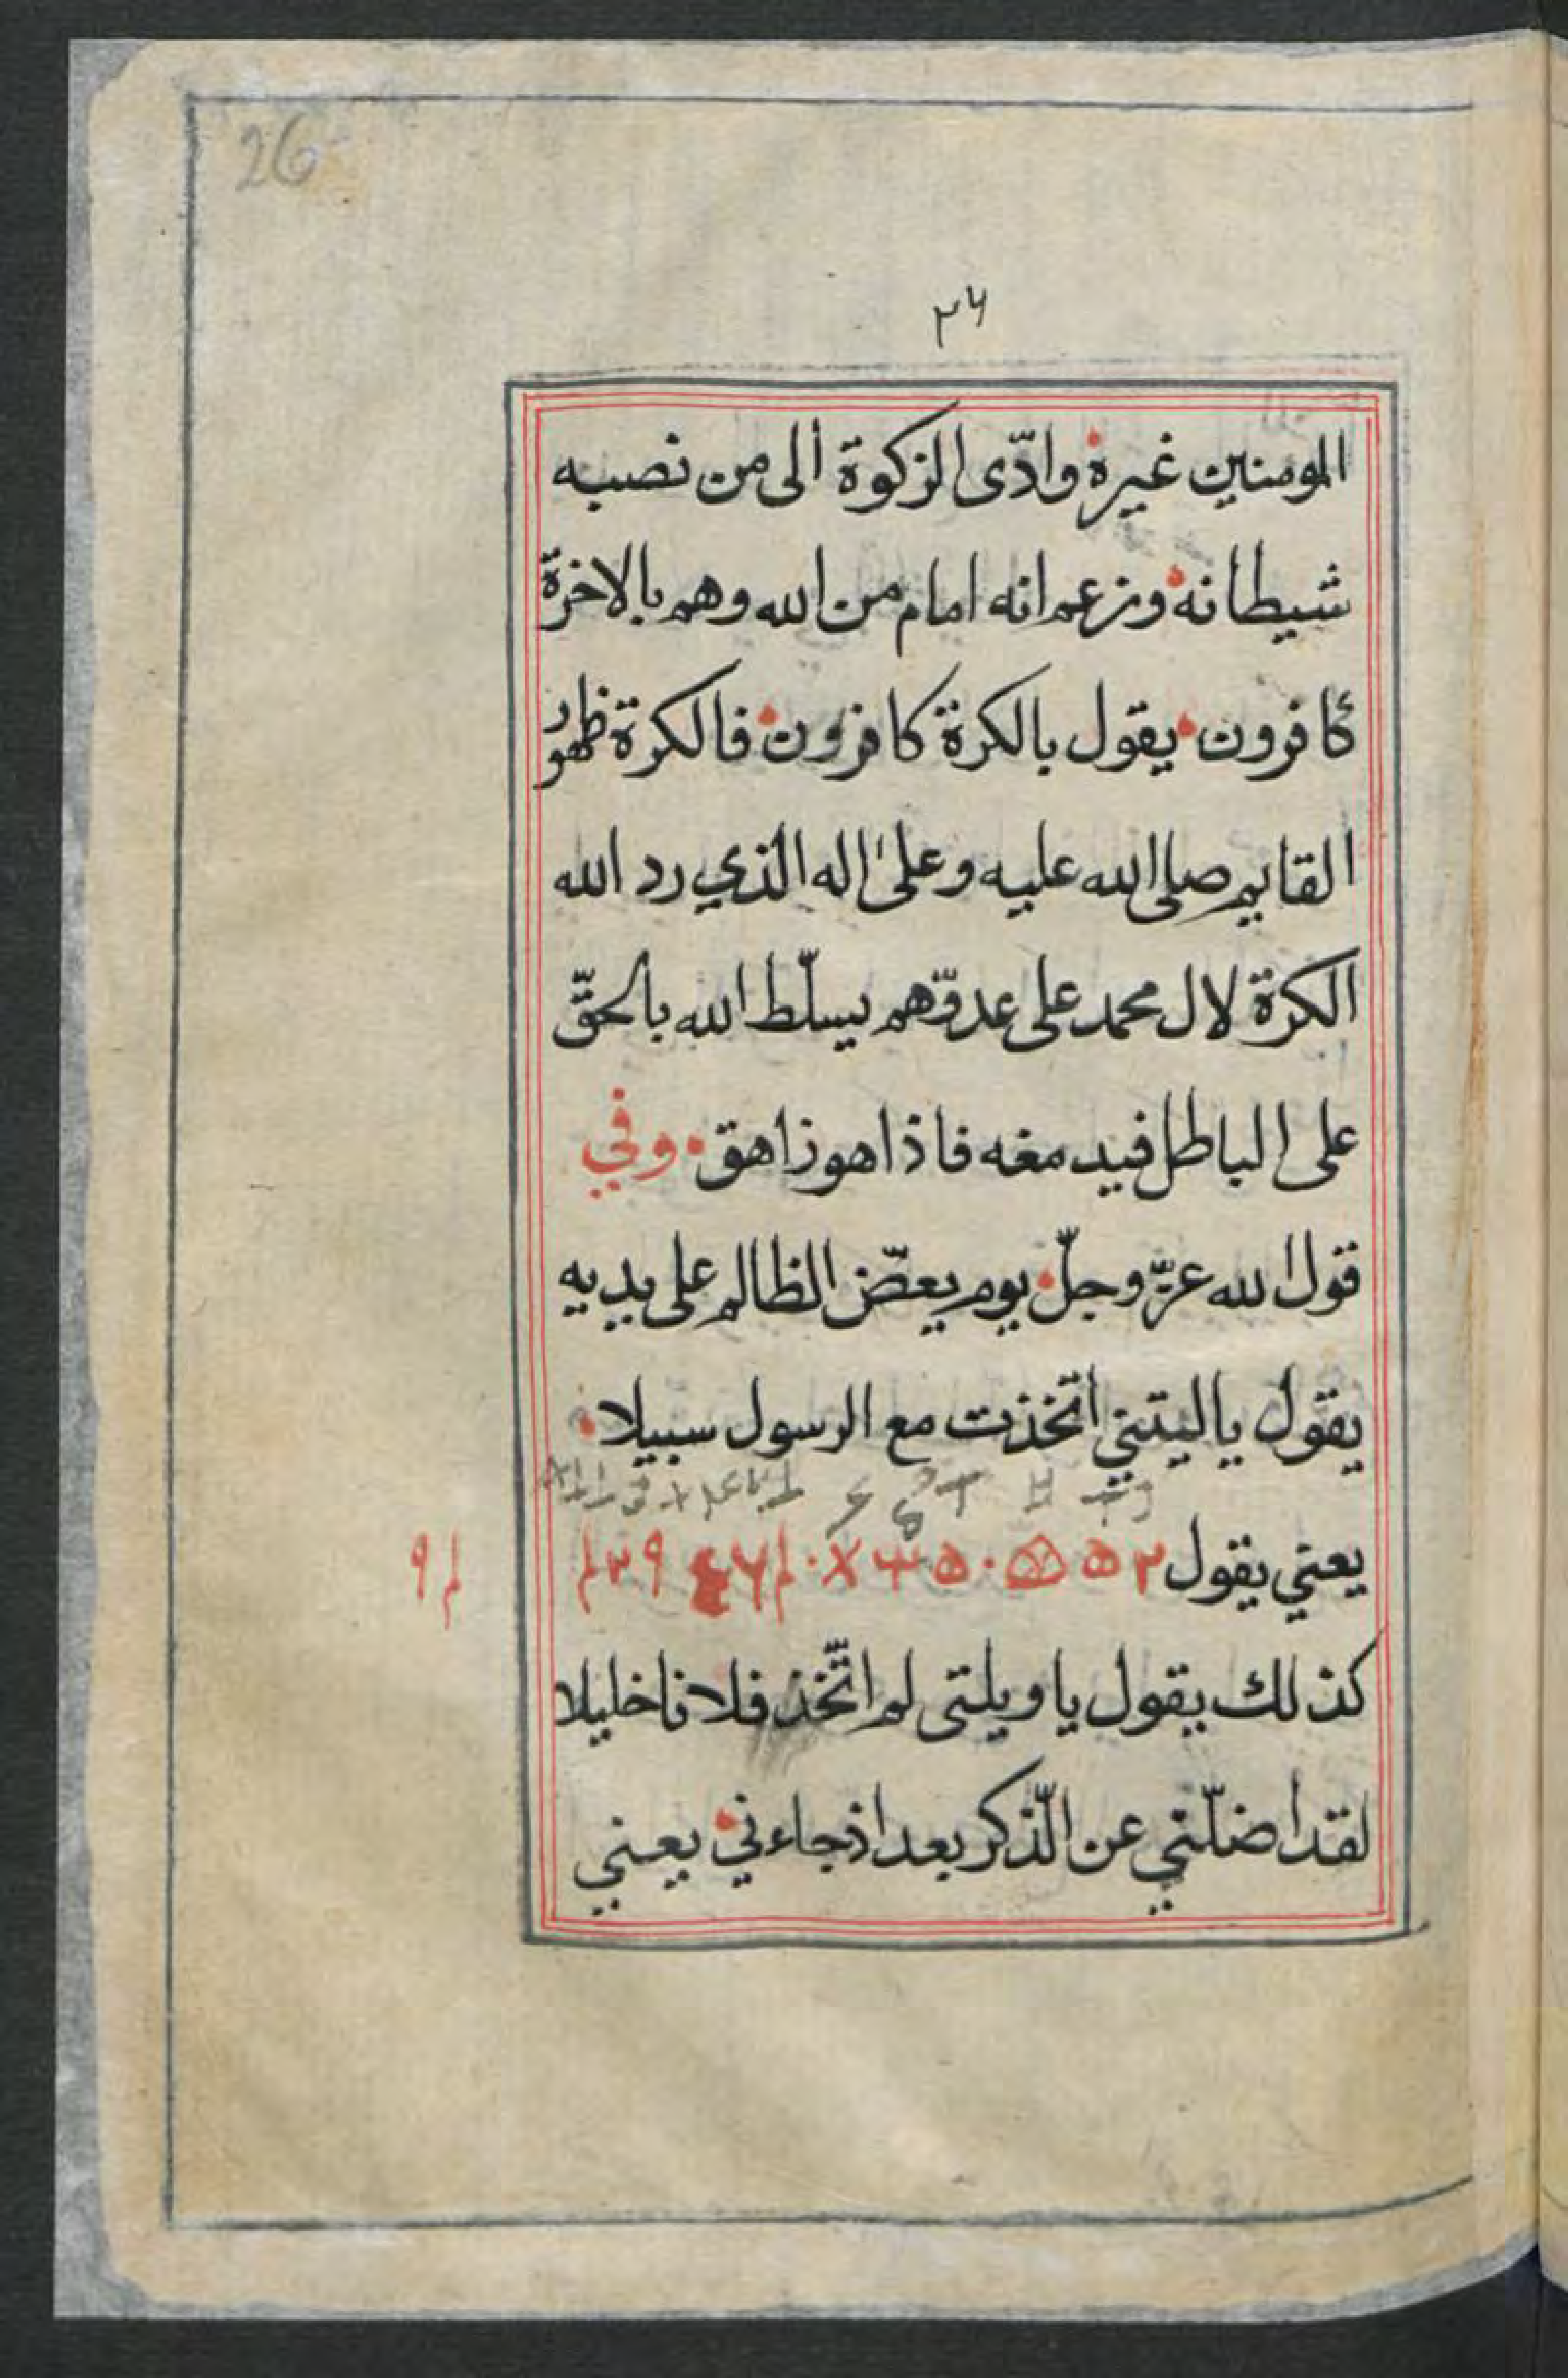 26
٢٦
المومنين غيره وادّى الزكوة الى من نصبه
شيطانه وزعم انه امام من الله وهم بالاخرة
كافرون يقول بالكرة كافرون فالكرة ظهور
القايم صلى الله عليه وعلى اله الذي رد الله
الكرة لال محمد على عدوّهم يسلّط الله بالحقّ
على الباطل فيدمغه فاذا هو زاهق وفي
قول الله عزّ وجلّ يوم يعضّ الظالم على يديه
يقول ياليتني اتّخذت مع الرسول سبيلا
يعني يقول
كذلك يقول ياويلتى لم اتّخذ فلانا خليلا
لقد اضلّني عن الذّكر بعد اذ جاءني يعني